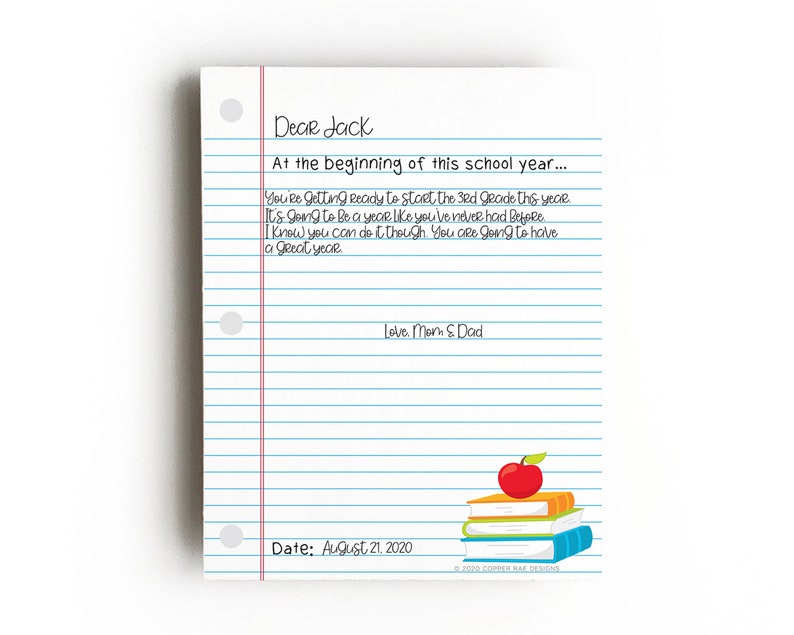 Dear Jack
At the beginning of this school year...
You're getting ready to start the 3rd grade this year.
It's going to be a year like you've never had before.
I know you can do it though. You are going to have
a great year.
Love, Mom & Dad
Date: August 21, 2020
© 2020 COPPER RAE DESIGNS